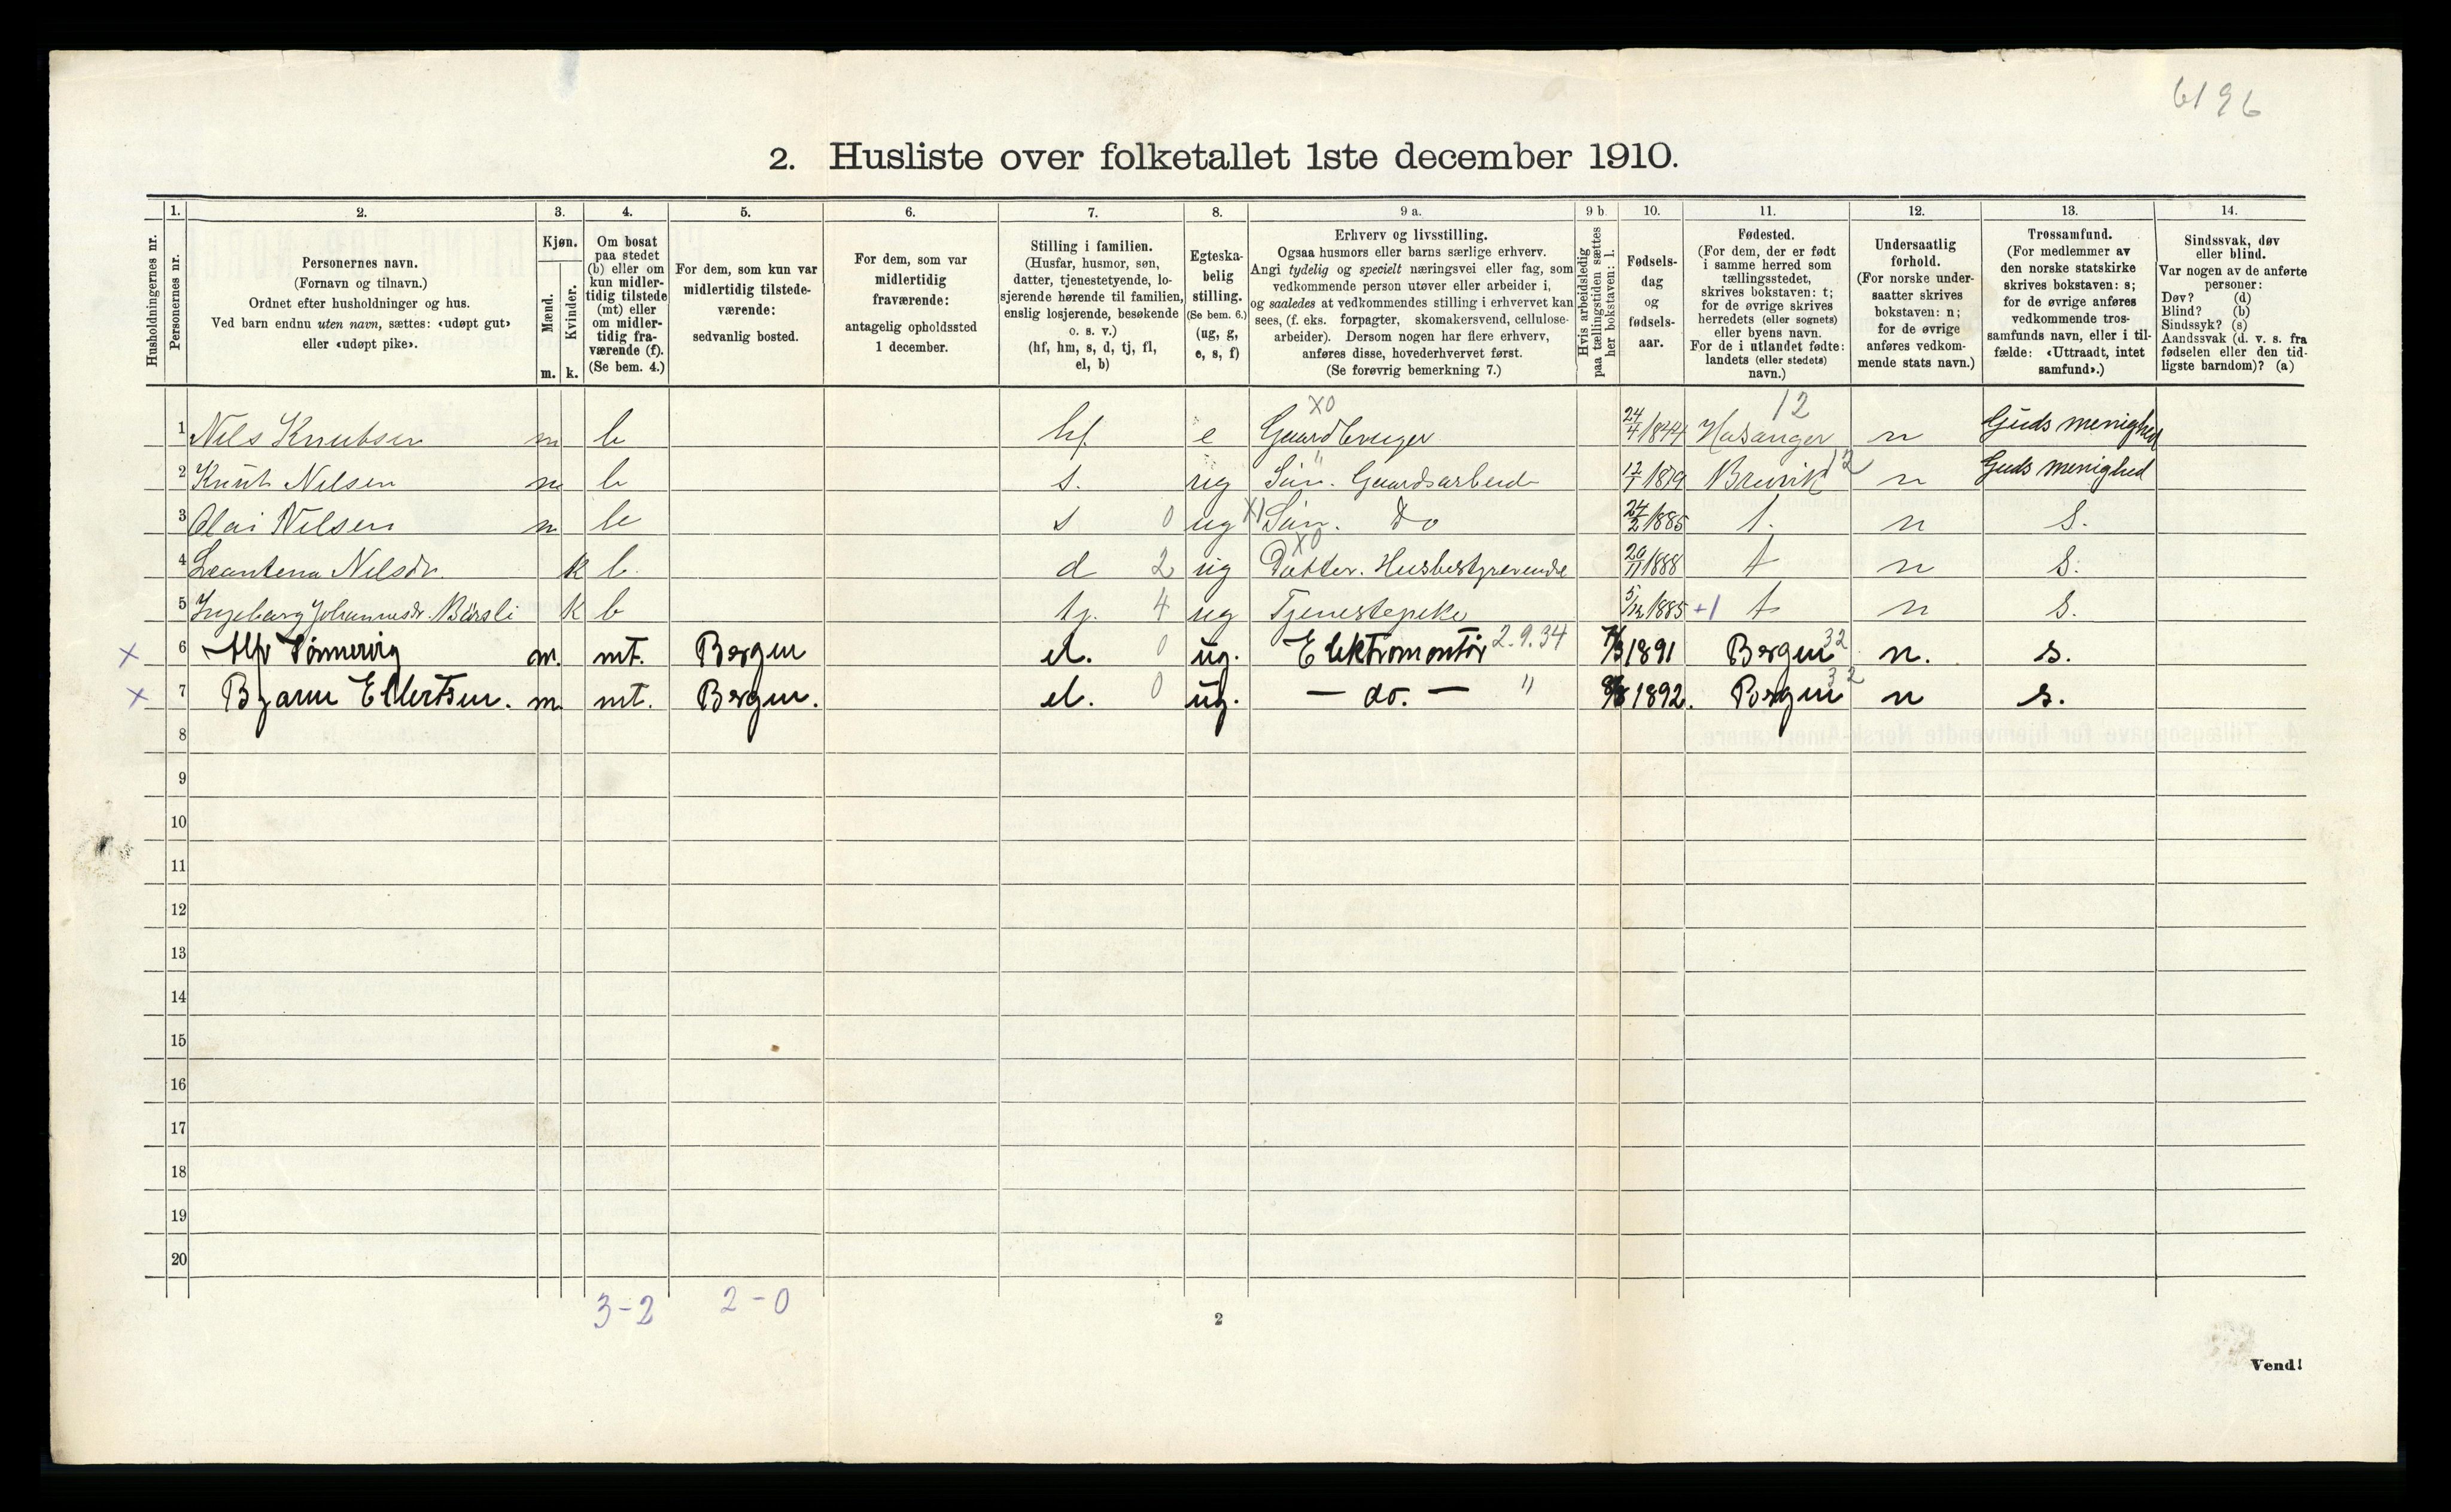 6196
2. Husliste over folketallet 1ste december 1910.
Husholdningernes nr.
1. Personernes nr.
2. Personernes navn. (Fornavn og tilnavn.) Ordnet efter husholdninger og hus. Ved barn endnu uten navn, sættes: «udøpt gut» eller «udøpt pike».
3. Kjøn. Mænd. m. Kvinder. k.
4. Om bosat paa stedet (b) eller om kun midlertidig tilstede (mt) eller om midlertidig fraværende (f). (Se bem. 4.)
5. For dem, som kun var midlertidig tilstedeværende: sedvanlig bosted.
6. For dem, som var midlertidig fraværende: antagelig opholdssted 1 december.
7. Stilling i familien. (Husfar, husmor, søn, datter, tjenestetyende, losjerende hørende til familien, enslig losjerende, besøkende o. s. v.) (hf, hm, s, d, tj, fl, el, b)
8. Egteskabelig stilling. (Se bem. 6.) (ug, g, e, s, f)
9 a. Erhverv og livsstilling. Ogsaa husmors eller barns særlige erhverv. Angi tydelig og specielt næringsvei eller fag, som vedkommende person utøver eller arbeider i, og saaledes at vedkommendes stilling i erhvervet kan sees, (f. eks. forpagter, skomakersvend, cellulosearbeider). Dersom nogen har flere erhverv, anføres disse, hovederhvervet først. (Se forøvrig bemerkning 7.)
9 b. Hvis arbeidsledig paa tællingstiden sættes her bokstaven: l.
10. Fødselsdag og fødselsaar.
11. Fødested. (For dem, der er født i samme herred som tællingsstedet, skrives bokstaven: t; for de øvrige skrives herredets (eller sognets) eller byens navn. For de i utlandet fødte: landets (eller stedets) navn.)
12. Undersaatlig forhold. (For norske undersaatter skrives bokstaven: n; for de øvrige anføres vedkommende stats navn.)
13. Trossamfund. (For medlemmer av den norske statskirke skrives bokstaven: s; for de øvrige anføres vedkommende trossamfunds navn, eller i tilfælde: «Uttraadt, intet samfund».)
14. Sindssvak, døv eller blind. Var nogen av de anførte personer: Døv? (d) Blind? (b) Sindssyk? (s) Aandssvak (d. v. s. fra fødselen eller den tidligste barndom)? (a)
X0 12
1 Nils Knutsen m b hf e Gaardbruger 24/4 1844 Hosanger n Guds menighed
2 Knut Nilsen m b s. ug Sön. Gaardsarbeide 1879 Bruvik 12 n Guds menighed
3 Olai Nilsen m b s 0 ug X1 Sön. Do 24/2 1885 t. n S.
X0
4 Nilsdr. k b. d 2 ug Datter. Husbestyrerende 29/11 1888 t n S.
5 Ingeborg Johannesdr. Börsli k b tj. 4 ug Tjenestepike 5/12 1885 +1 t n S.
x 6 Alf Tönnevig m. mt. Bergen el. 0 ug. Elektromontör 2.9.34 1891 Bergen 32 n. s.
x 7 Bjarne Ellertsen. m mt. Bergen. el. 0 ug. — do. — " 1892. Bergen 32 n s.
8
9
10
11
12
13
14
15
16
17
18
19
20
3-2 2-0
2
Vend!